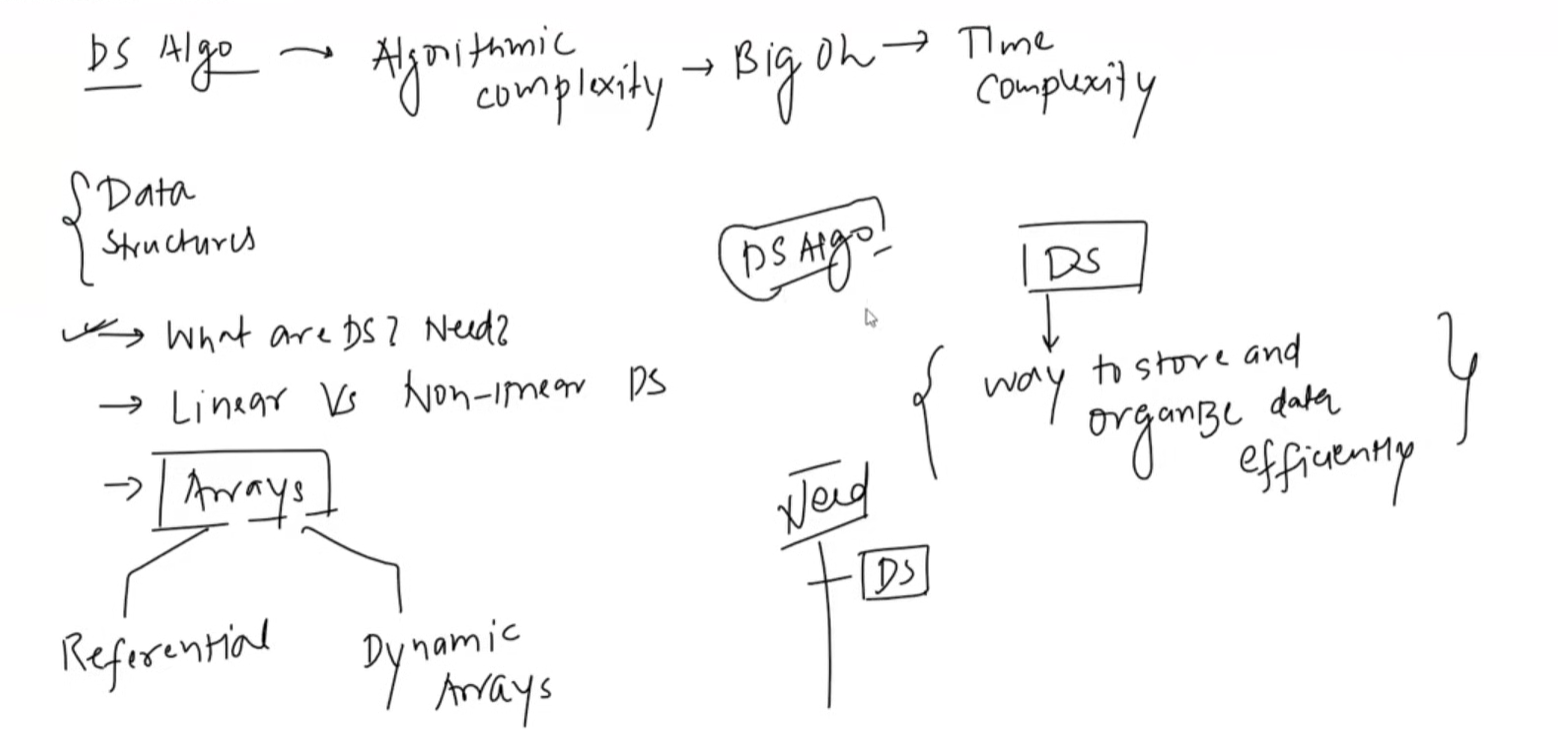 DS Algo → Algorithmic complexity → Big Oh → Time complexity
Data
Structures
→ What are DS? Need?
→ Linear Vs Non-linear DS
→ Arrays
Referential
Dynamic
Arrays
DS Algo
DS
way to store and
organize data
efficiently
Need
DS